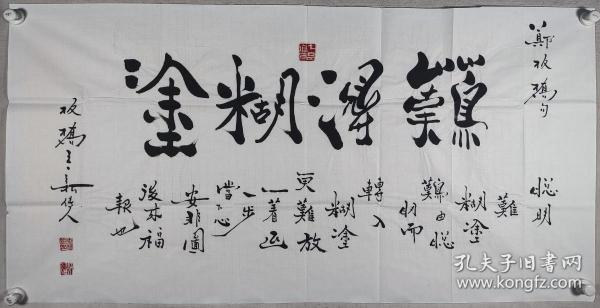 鄭板橋句
難得糊塗
聰明
難
糊塗
難由聰
明而
轉入
糊塗
更難放
一着退
一步
當下心
安非圖
後來福
報也
板橋
孔夫子旧书网